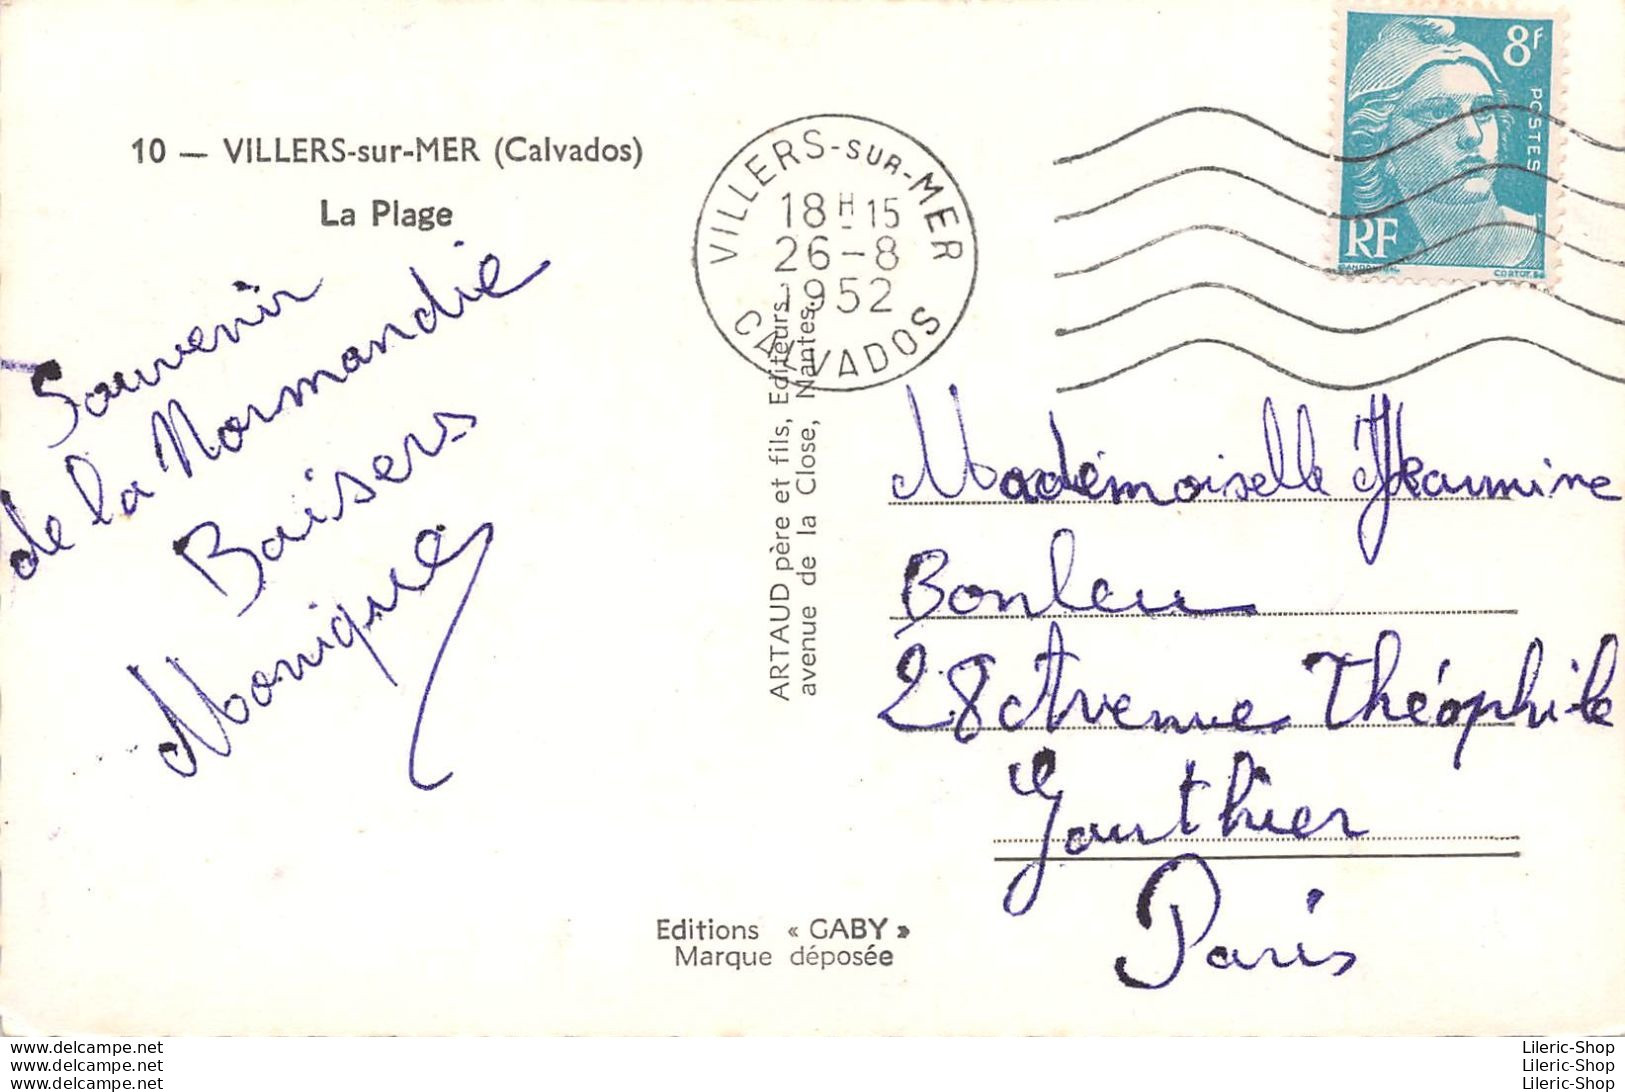 10 — VILLERS-sur-MER (Calvados)
La Plage
Souvenir
de la Normandie
Baisers
Monique
VILLERS-SUR-MER
18H-15
26-8
1952
CALVADOS
8F
POSTES
RF
GANDON
CORTOT.SC
ARTAUD père et fils, Editeurs
avenue de la Close, Nantes.
Mademoiselle Jeannine
Bonleu
28 Avenue Théophile
Gauthier
Paris
Editions « GABY »
Marque déposée
www.delcampe.net
www.delcampe.net
www.delcampe.net
Lileric-Shop
Lileric-Shop
Lileric-Shop